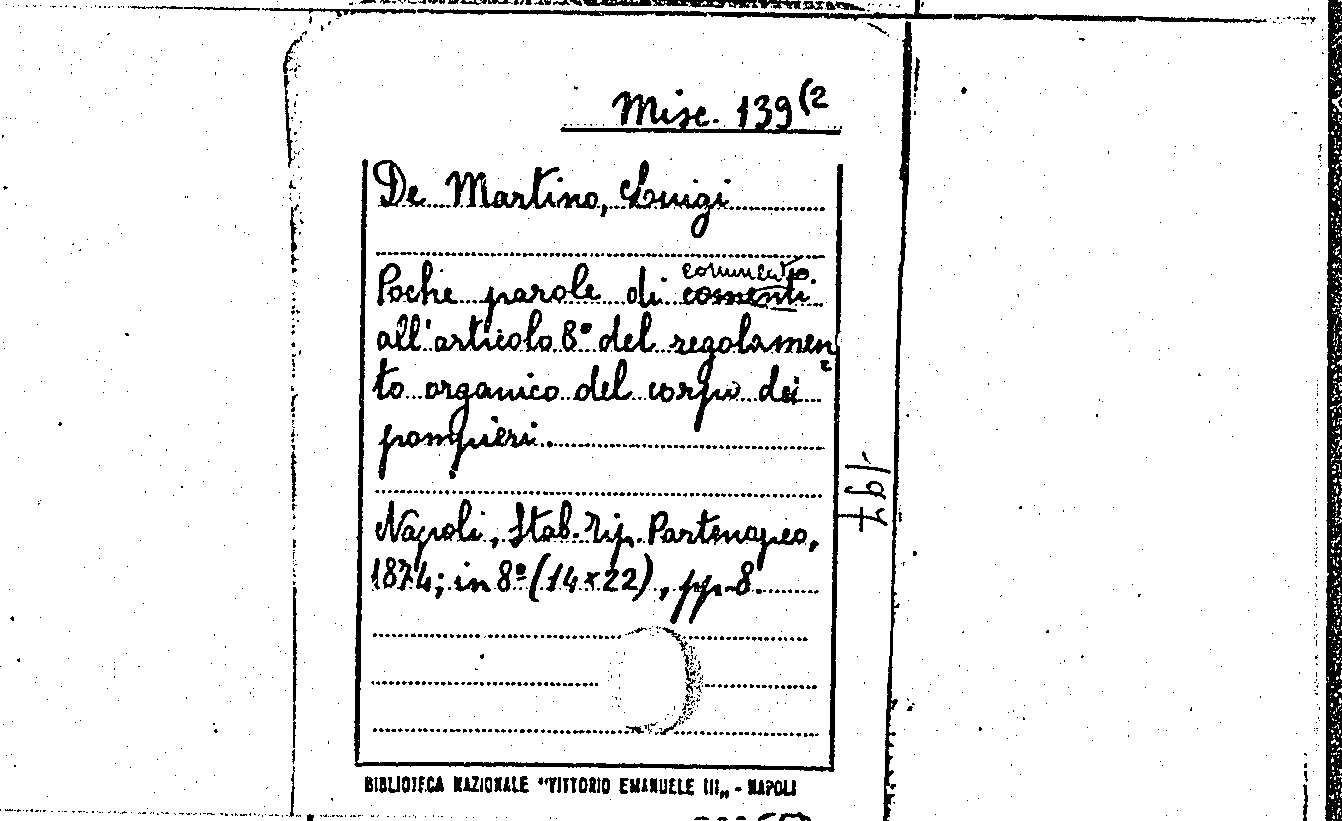 Misc. 139(2
De Martino, Luigi
comento.
Poche parole di comenti
all'articolo 8° del regolamen
to organico del corpo dei
pompieri.
Napoli, Stab. Tip. Partenopeo,
1874; in 8º (14×22), pp. 8.
BIBLIOTECA NAZIONALE "VITTORIO EMANUELE III„ - NAPOLI